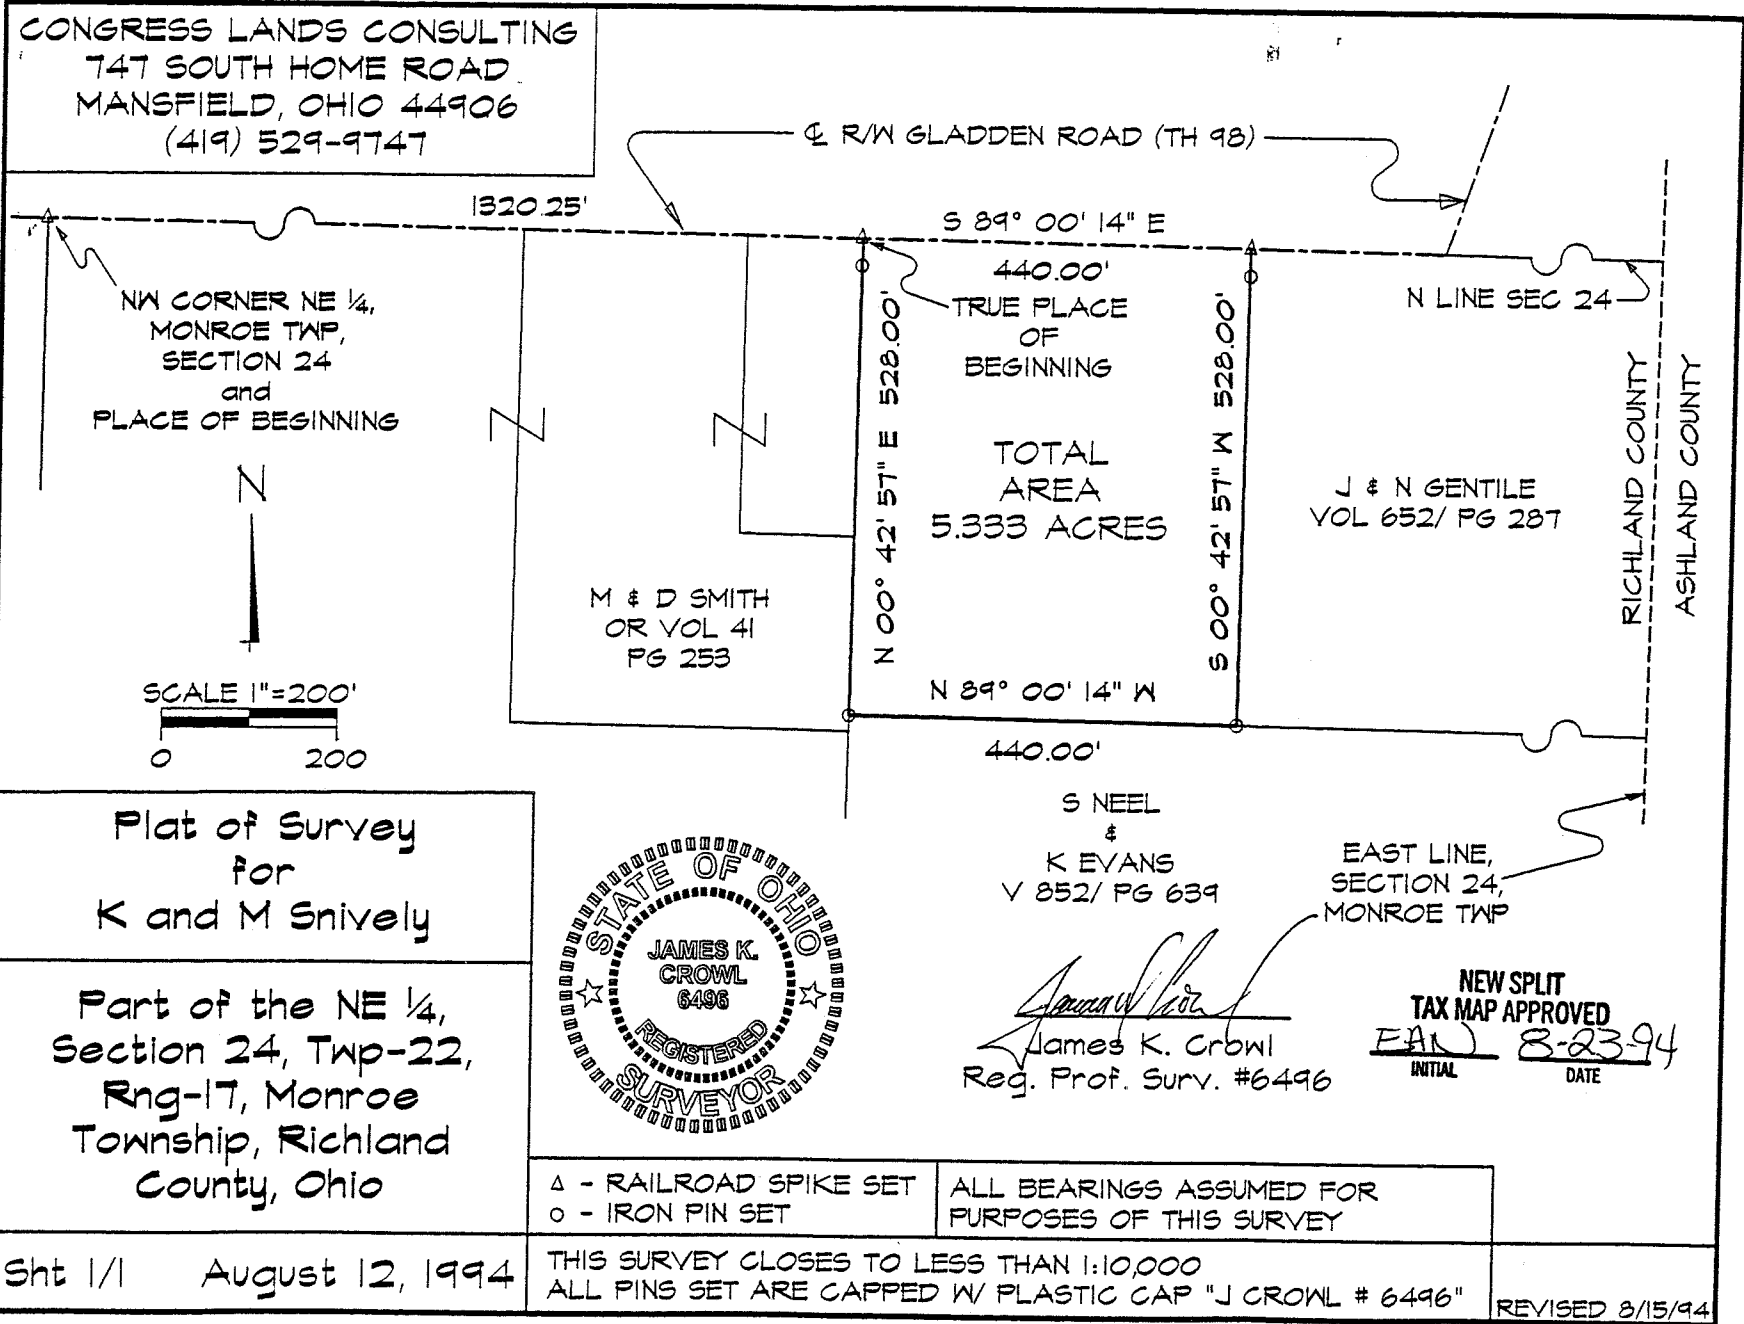 CONGRESS LANDS CONSULTING
747 SOUTH HOME ROAD
MANSFIELD, OHIO 44906
(419) 529-9747
℄ R/W GLADDEN ROAD (TH 98)
1320.25'
S 89° 00' 14" E
440.00'
NW CORNER NE ¼,
MONROE TWP,
SECTION 24
and
PLACE OF BEGINNING
TRUE PLACE
OF
BEGINNING
N LINE SEC 24
N 00° 42' 57" E 528.00'
S 00° 42' 57" W 528.00'
RICHLAND COUNTY
ASHLAND COUNTY
TOTAL
AREA
5.333 ACRES
J & N GENTILE
VOL 652/ PG 287
N
M & D SMITH
OR VOL 41
PG 253
N 89° 00' 14" W
440.00'
SCALE 1"=200'
0 200
S NEEL
&
K EVANS
V 852/ PG 639
EAST LINE,
SECTION 24,
MONROE TWP
Plat of Survey
for
K and M Snively
Part of the NE ¼,
Section 24, Twp-22,
Rng-17, Monroe
Township, Richland
County, Ohio
STATE OF OHIO
JAMES K.
CROWL
6496
REGISTERED
SURVEYOR
James K. Crowl
Reg. Prof. Surv. #6496
NEW SPLIT
TAX MAP APPROVED
EAN 8-23-94
INITIAL DATE
△ - RAILROAD SPIKE SET
○ - IRON PIN SET
ALL BEARINGS ASSUMED FOR
PURPOSES OF THIS SURVEY
Sht 1/1 August 12, 1994
THIS SURVEY CLOSES TO LESS THAN 1:10,000
ALL PINS SET ARE CAPPED W/ PLASTIC CAP "J CROWL # 6496"
REVISED 8/15/94